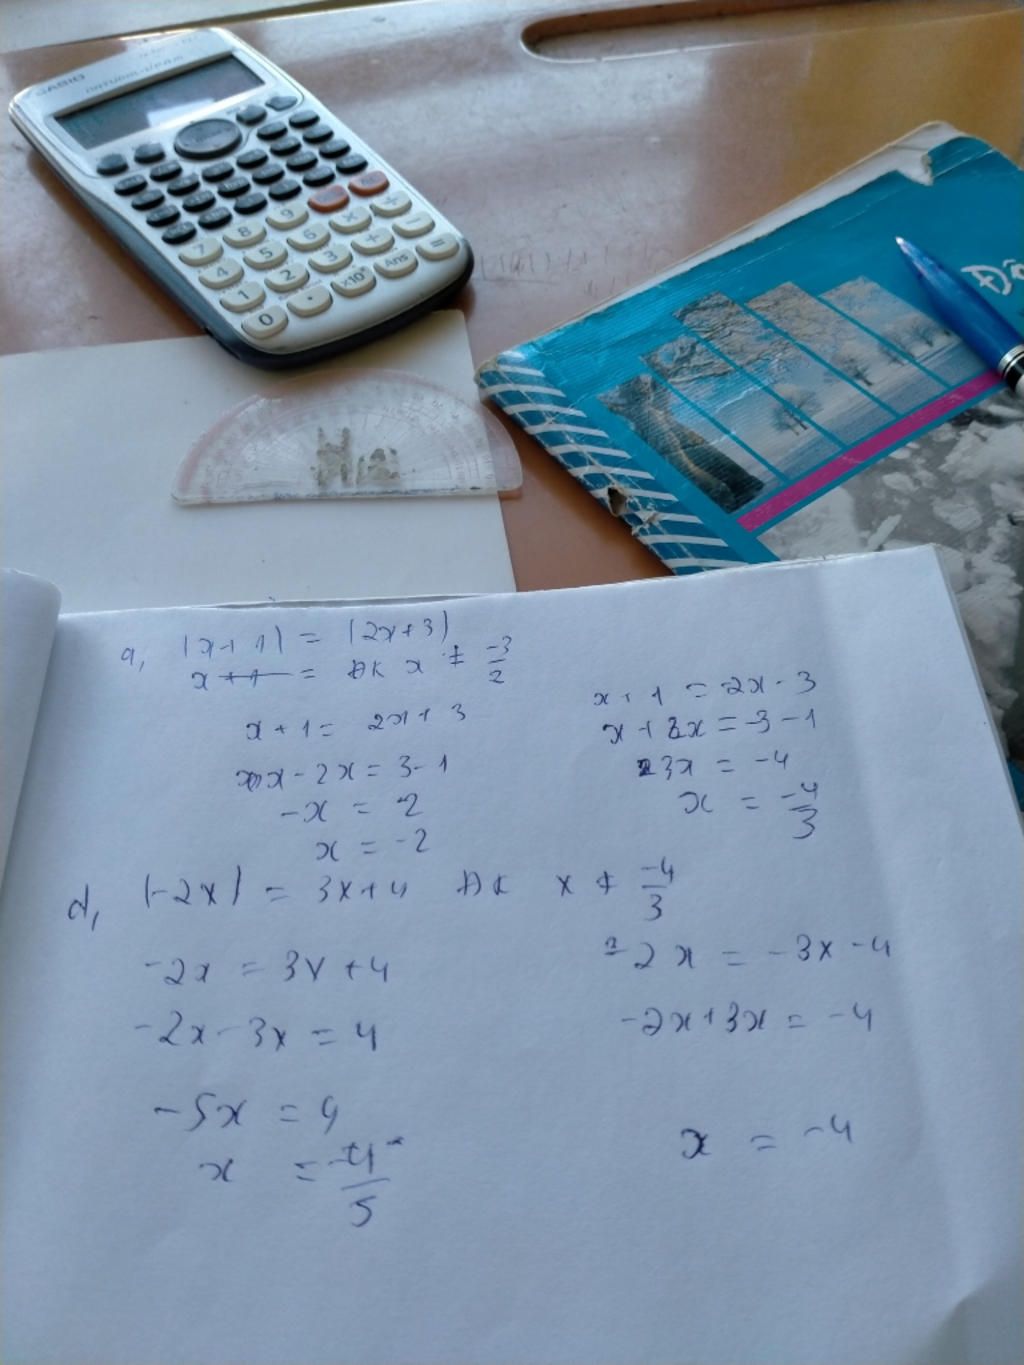 CASIO
NATURAL-V.P.A.M.
7 8 9
4 5 6 × ÷
1 2 3 + −
0 . ×10ˣ Ans =
Đô
a, |x+1| = |2x+3|
x+1 = ĐK x ≠ -3/2
x+1 = 2x+3
x-2x = 3-1
-x = 2
x = -2
x+1 = -2x-3
x+2x = -3-1
3x = -4
x = -4/3
d, |-2x| = 3x+4 ĐK x ≠ -4/3
-2x = 3x+4
-2x-3x = 4
-5x = 4
x = -4/5
-2x = -3x-4
-2x+3x = -4
x = -4